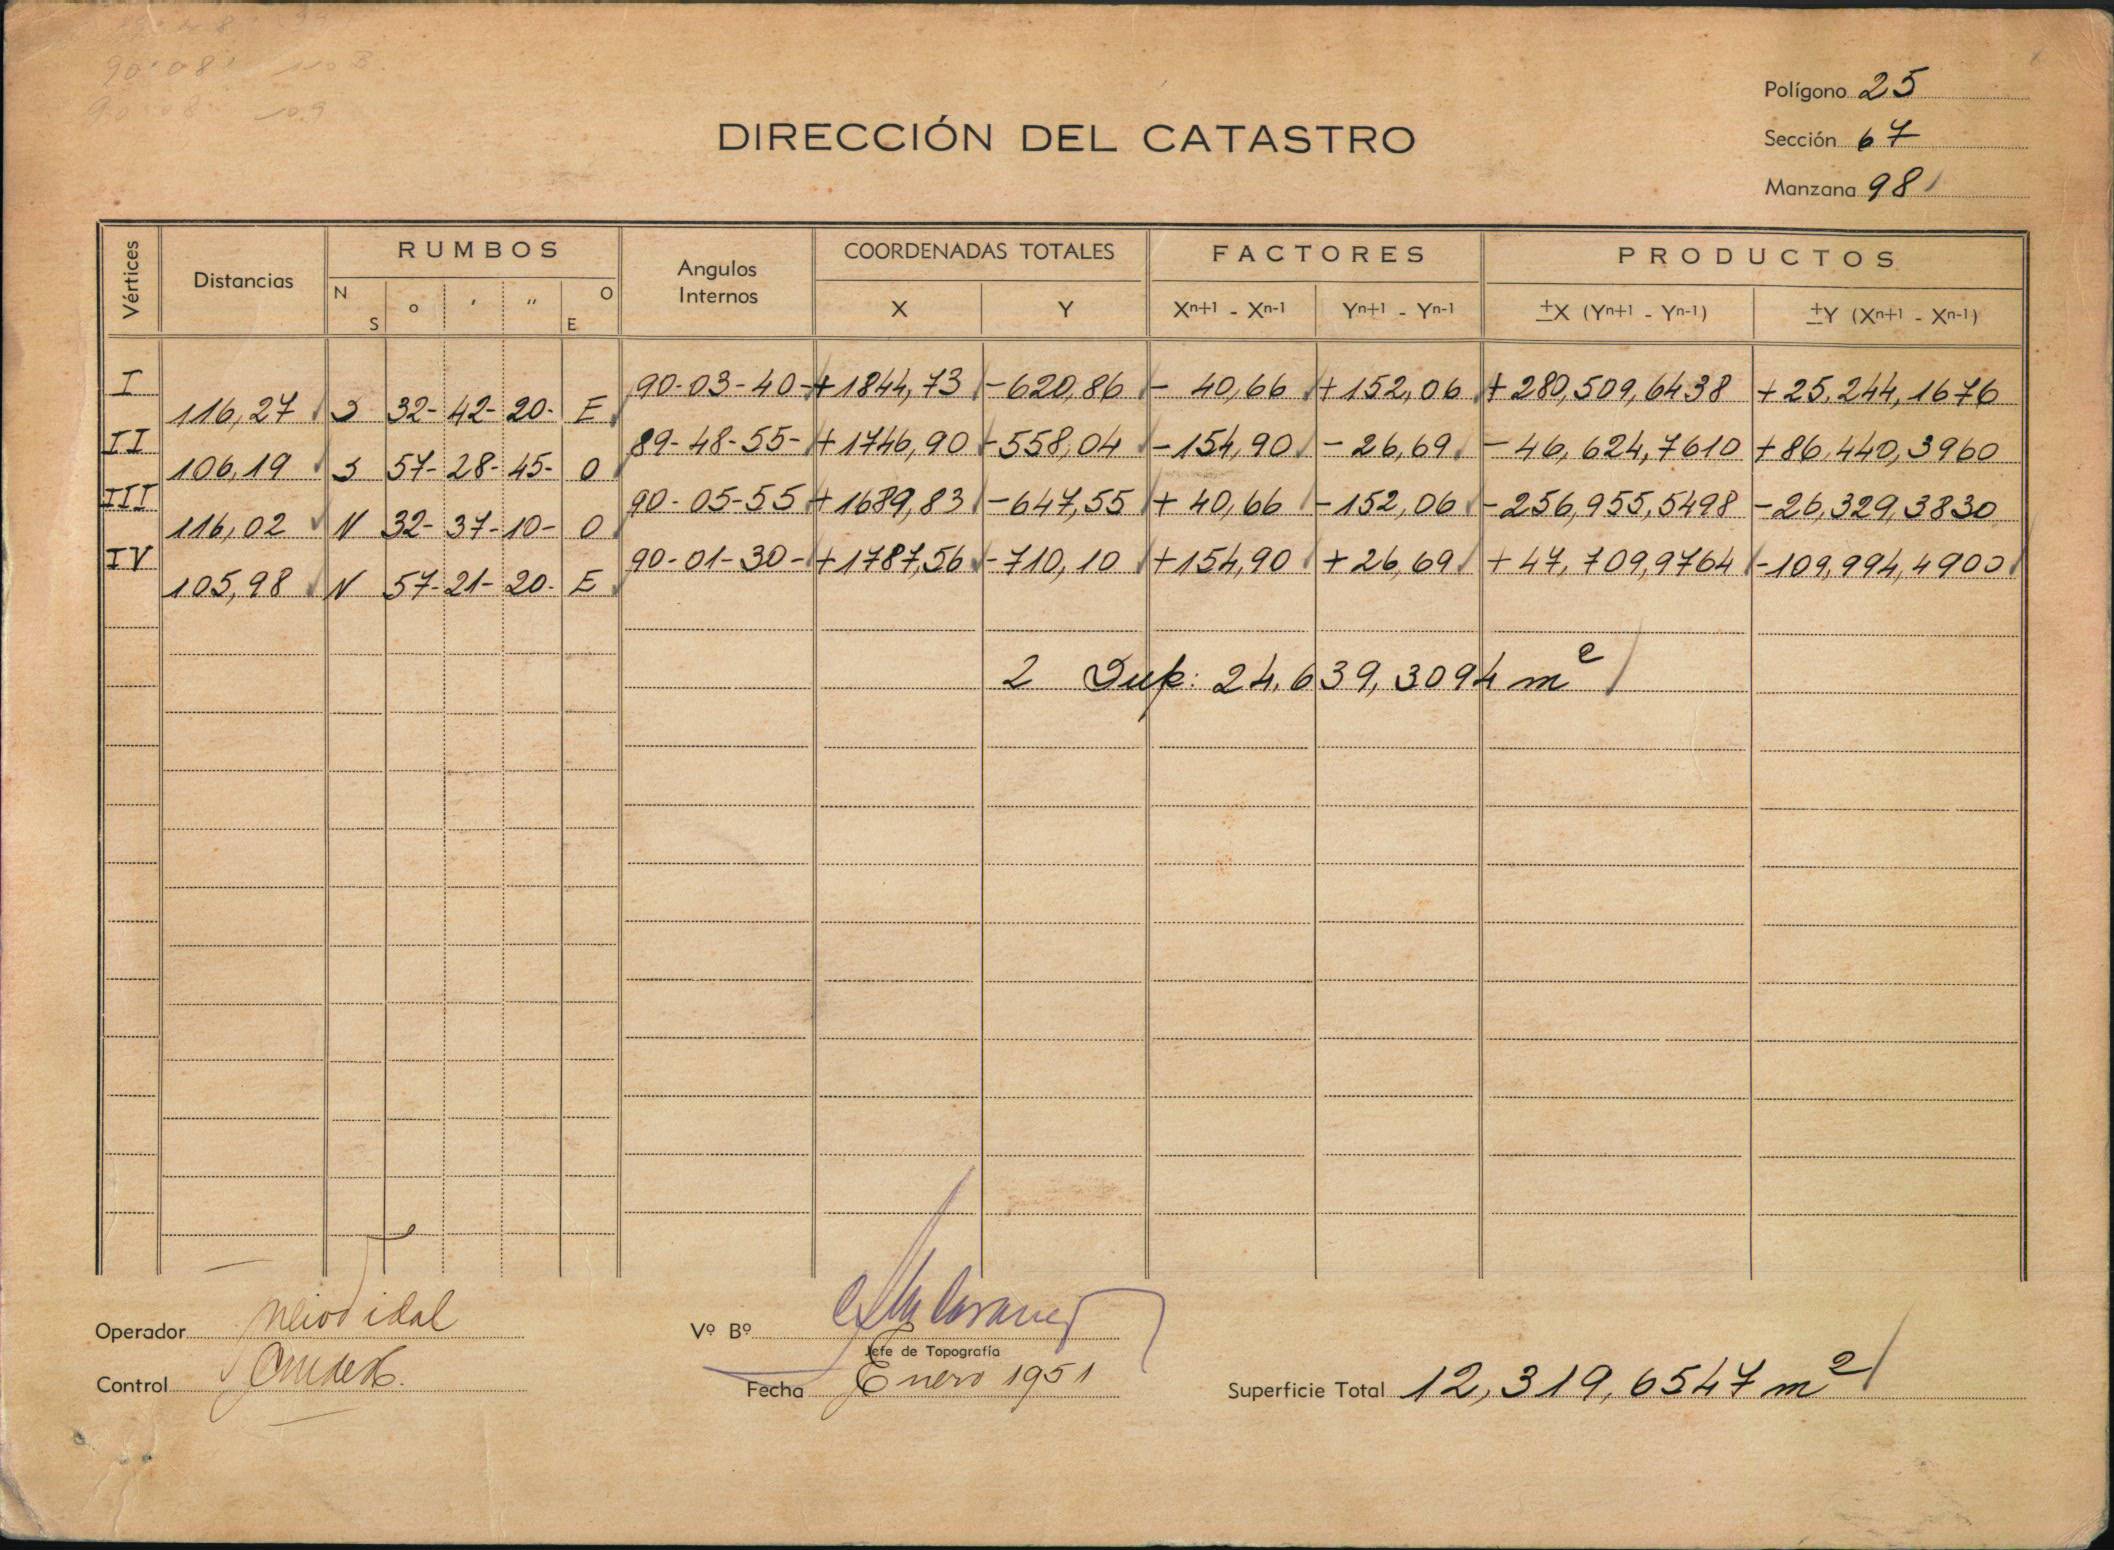 90° 08' 110 B.
90 08 109
DIRECCIÓN DEL CATASTRO
Polígono 25
Sección 67
Manzana 98
Vértices Distancias RUMBOS Angulos Internos COORDENADAS TOTALES FACTORES PRODUCTOS
N S ° ' " O E X Y Xn+1 - Xn-1 Yn+1 - Yn-1 ±X (Yn+1 - Yn-1) ±Y (Xn+1 - Xn-1)
I 90-03-40- +1844,73 -620,86 - 40,66 +152,06 +280,509,6438 +25,244,1676
116,27 S 32- 42- 20- E
II 89-48-55- +1746,90 -558,04 -154,90 -26,69 -46,624,7610 +86,440,3960
106,19 S 57- 28- 45- O
III 90-05-55 +1689,83 -647,55 + 40,66 -152,06 -256,955,5498 -26,329,3830
116,02 N 32- 37- 10- O
IV 90-01-30- +1787,56 -710,10 +154,90 +26,69 +47,709,9764 -109,994,4900
105,98 N 57- 21- 20- E
2 Sup: 24,639,3094 m2
Operador
Control
Vº Bº
Jefe de Topografía
Fecha Enero 1951
Superficie Total 12,319,6547 m2